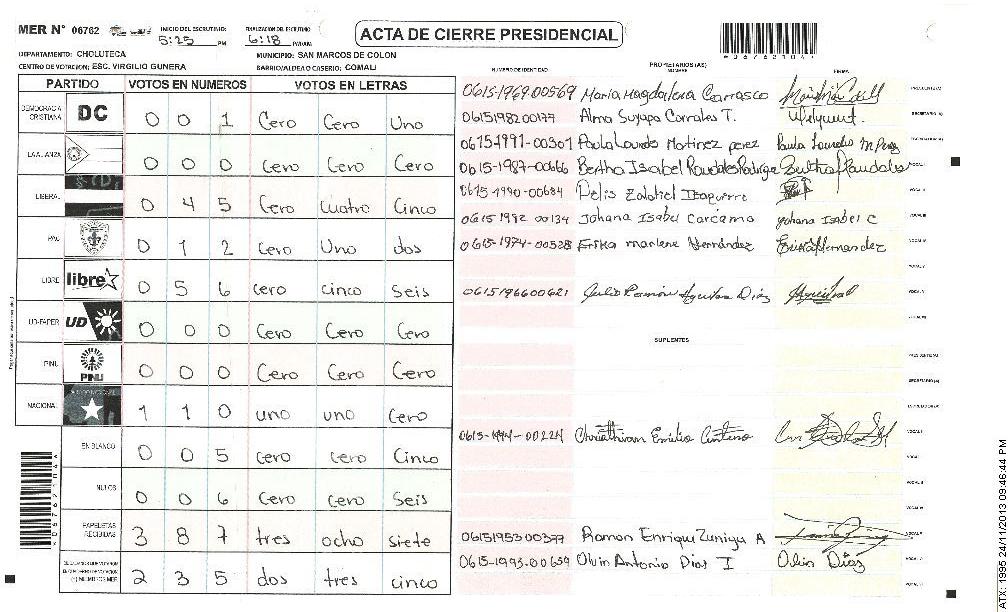 MER N° 06762 INICIO DEL ESCRUTINIO: 5:25 PM FINALIZACION DEL ESCRUTINIO 6:18 PM/DAM
ACTA DE CIERRE PRESIDENCIAL
DEPARTAMENTO: CHOLUTECA MUNICIPIO: SAN MARCOS DE COLON
CENTRO DE VOTACION: ESC. VIRGILIO GUNERA BARRIO/ALDEA O CASERIO: COMALI
PARTIDO VOTOS EN NUMEROS VOTOS EN LETRAS
DEMOCRACIA CRISTIANA DC 0 0 1 Cero Cero Uno
LA ALIANZA 0 0 0 Cero Cero Cero
LIBERAL 0 4 5 Cero Cuatro Cinco
PAC 0 1 2 Cero Uno dos
LIBRE libre 0 5 6 Cero Cinco Seis
UD-FAPER UD 0 0 0 Cero Cero Cero
PINU PINU 0 0 0 Cero Cero Cero
NACIONAL 1 1 0 uno uno Cero
EN BLANCO 0 0 5 Cero Cero Cinco
NULOS 0 0 6 Cero Cero Seis
PAPELETAS RECIBIDAS 3 8 7 tres ocho siete
2 3 5 dos tres cinco
NUMERO DE IDENTIDAD PROPIETARIOS (AS) NOMBRE FIRMA
0615-1969-00569 Maria Magdalena Carrasco
0615198200177 Alma Suyapa Corrales T.
0615-1991-00301 Paula Lourdes Martinez perez Paula Lourdes M Perez
0615-1987-00666 Bertha Isabel Raudales Rodrigez Bertha Raudales
0615-1990-00684
0615 1982 00134 Johana Isabel Carcamo Johana Isabel C
0615-1974-00328 Erika marlene Hernández Erika Hernandez
0615196600621 Julio Ramón Aguilera Diaz
SUPLENTES
0615-1994-00224 Emilio
0615195300377 Ramon Enrique Zuniga A
0615-1993-00659 Olvin Antonio Dias I Olvin Diaz
*06762104*
ATX: 1995 24/11/2013 09:46:44 PM